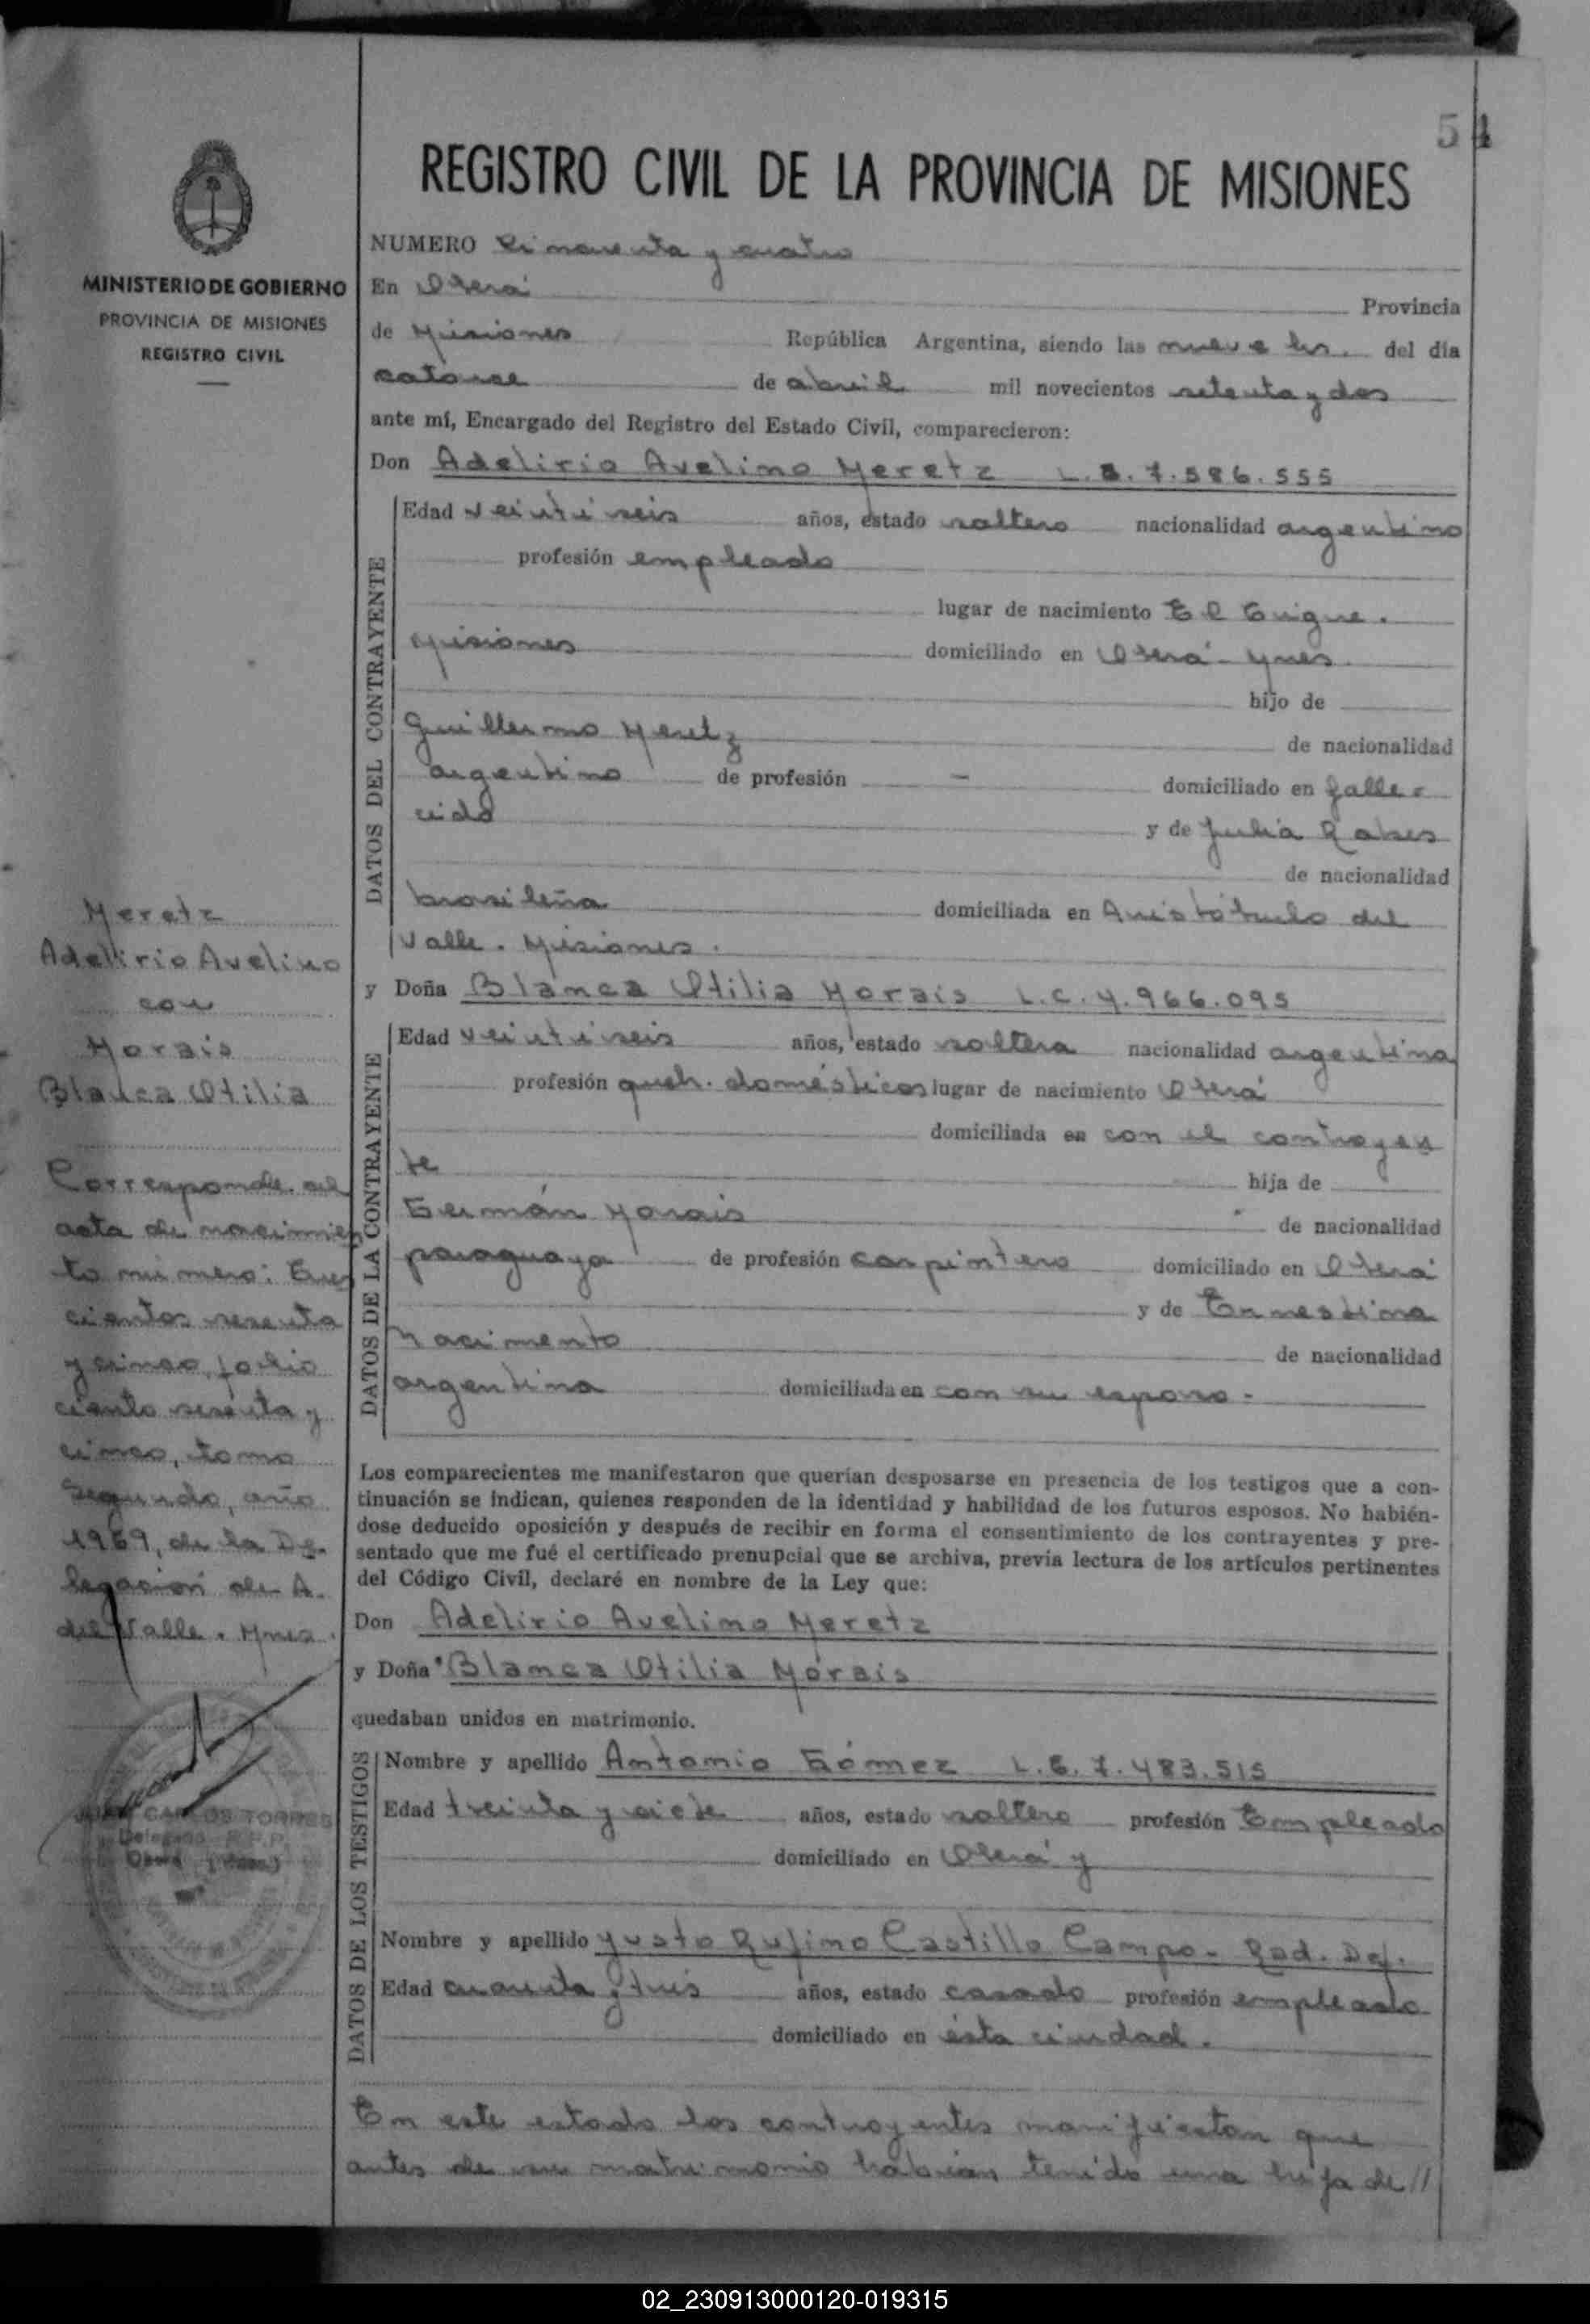 54
REGISTRO CIVIL DE LA PROVINCIA DE MISIONES
MINISTERIO DE GOBIERNO
PROVINCIA DE MISIONES
REGISTRO CIVIL
NUMERO Cincuenta y cuatro
En Oberá Provincia
de Misiones República Argentina, siendo las nueve hs. del día
catorce de abril mil novecientos setenta y dos
ante mí, Encargado del Registro del Estado Civil, comparecieron:
Don Adelirio Avelino Meretz L.E. 7.586.555
DATOS DEL CONTRAYENTE
Edad veintiseis años, estado soltero nacionalidad argentino
profesión empleado
lugar de nacimiento El Tigre.
Misiones domiciliado en Oberá - Mnes
hijo de
Guillermo Meretz de nacionalidad
argentino de profesión — domiciliado en falle-
cido y de Julia
de nacionalidad
brasileña domiciliada en Aristóbulo del
Valle. Misiones.
y Doña Blanca Otilia Morais L.C. 4.966.095
DATOS DE LA CONTRAYENTE
Edad veintiseis años, estado soltera nacionalidad argentina
profesión queh. domésticos lugar de nacimiento Oberá
domiciliada en con el contrayen
te hija de
Germán Morais de nacionalidad
paraguaya de profesión carpintero domiciliado en Oberá
y de Ernestina
Nacimento de nacionalidad
argentina domiciliada en con su esposo.-
Los comparecientes me manifestaron que querían desposarse en presencia de los testigos que a con-
tinuación se indican, quienes responden de la identidad y habilidad de los futuros esposos. No habién-
dose deducido oposición y después de recibir en forma el consentimiento de los contrayentes y pre-
sentado que me fué el certificado prenupcial que se archiva, previa lectura de los artículos pertinentes
del Código Civil, declaré en nombre de la Ley que:
Don Adelirio Avelino Meretz
y Doña Blanca Otilia Morais
quedaban unidos en matrimonio.
DATOS DE LOS TESTIGOS
Nombre y apellido Antonio Gómez L.E. 7.483.515
Edad treinta y siete años, estado soltero profesión Empleado
domiciliado en Oberá y
Nombre y apellido Justo Rufino Castillo Campo- Rad. Def.
Edad cuarenta y tres años, estado casado profesión empleado
domiciliado en ésta ciudad.
En este estado los contrayentes manifiestan que
antes de su matrimonio habían tenido una hija de //
Meretz
Adelirio Avelino
con
Morais
Blanca Otilia
Corresponde al
acta de nacimien
to número: Tres
cientos sesenta
y cinco, folio
ciento sesenta y
cinco, tomo
Segundo, año
1969, de la De-
legación de A.
del Valle. Mnes.
JUAN CARLOS TORRES
Delegado R.P.P.
Oberá (Mnes.)
02_230913000120-019315